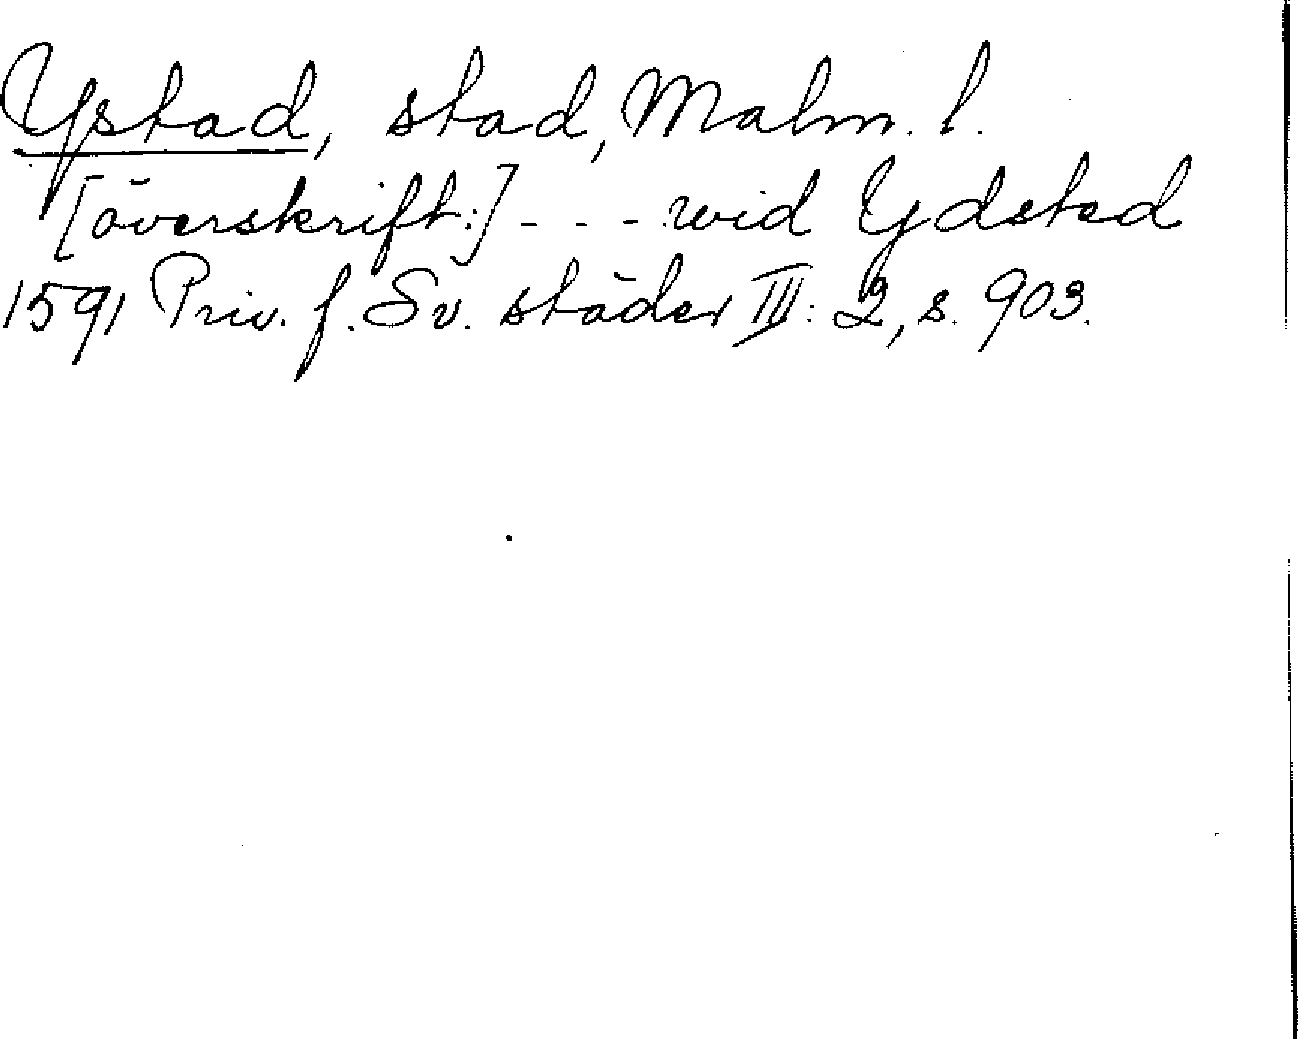 Ystad, stad, Malm. l.
[överskrift:] - - - wid Ydsted
1591 Priv. f. Sv. städer III: 2, s. 903.